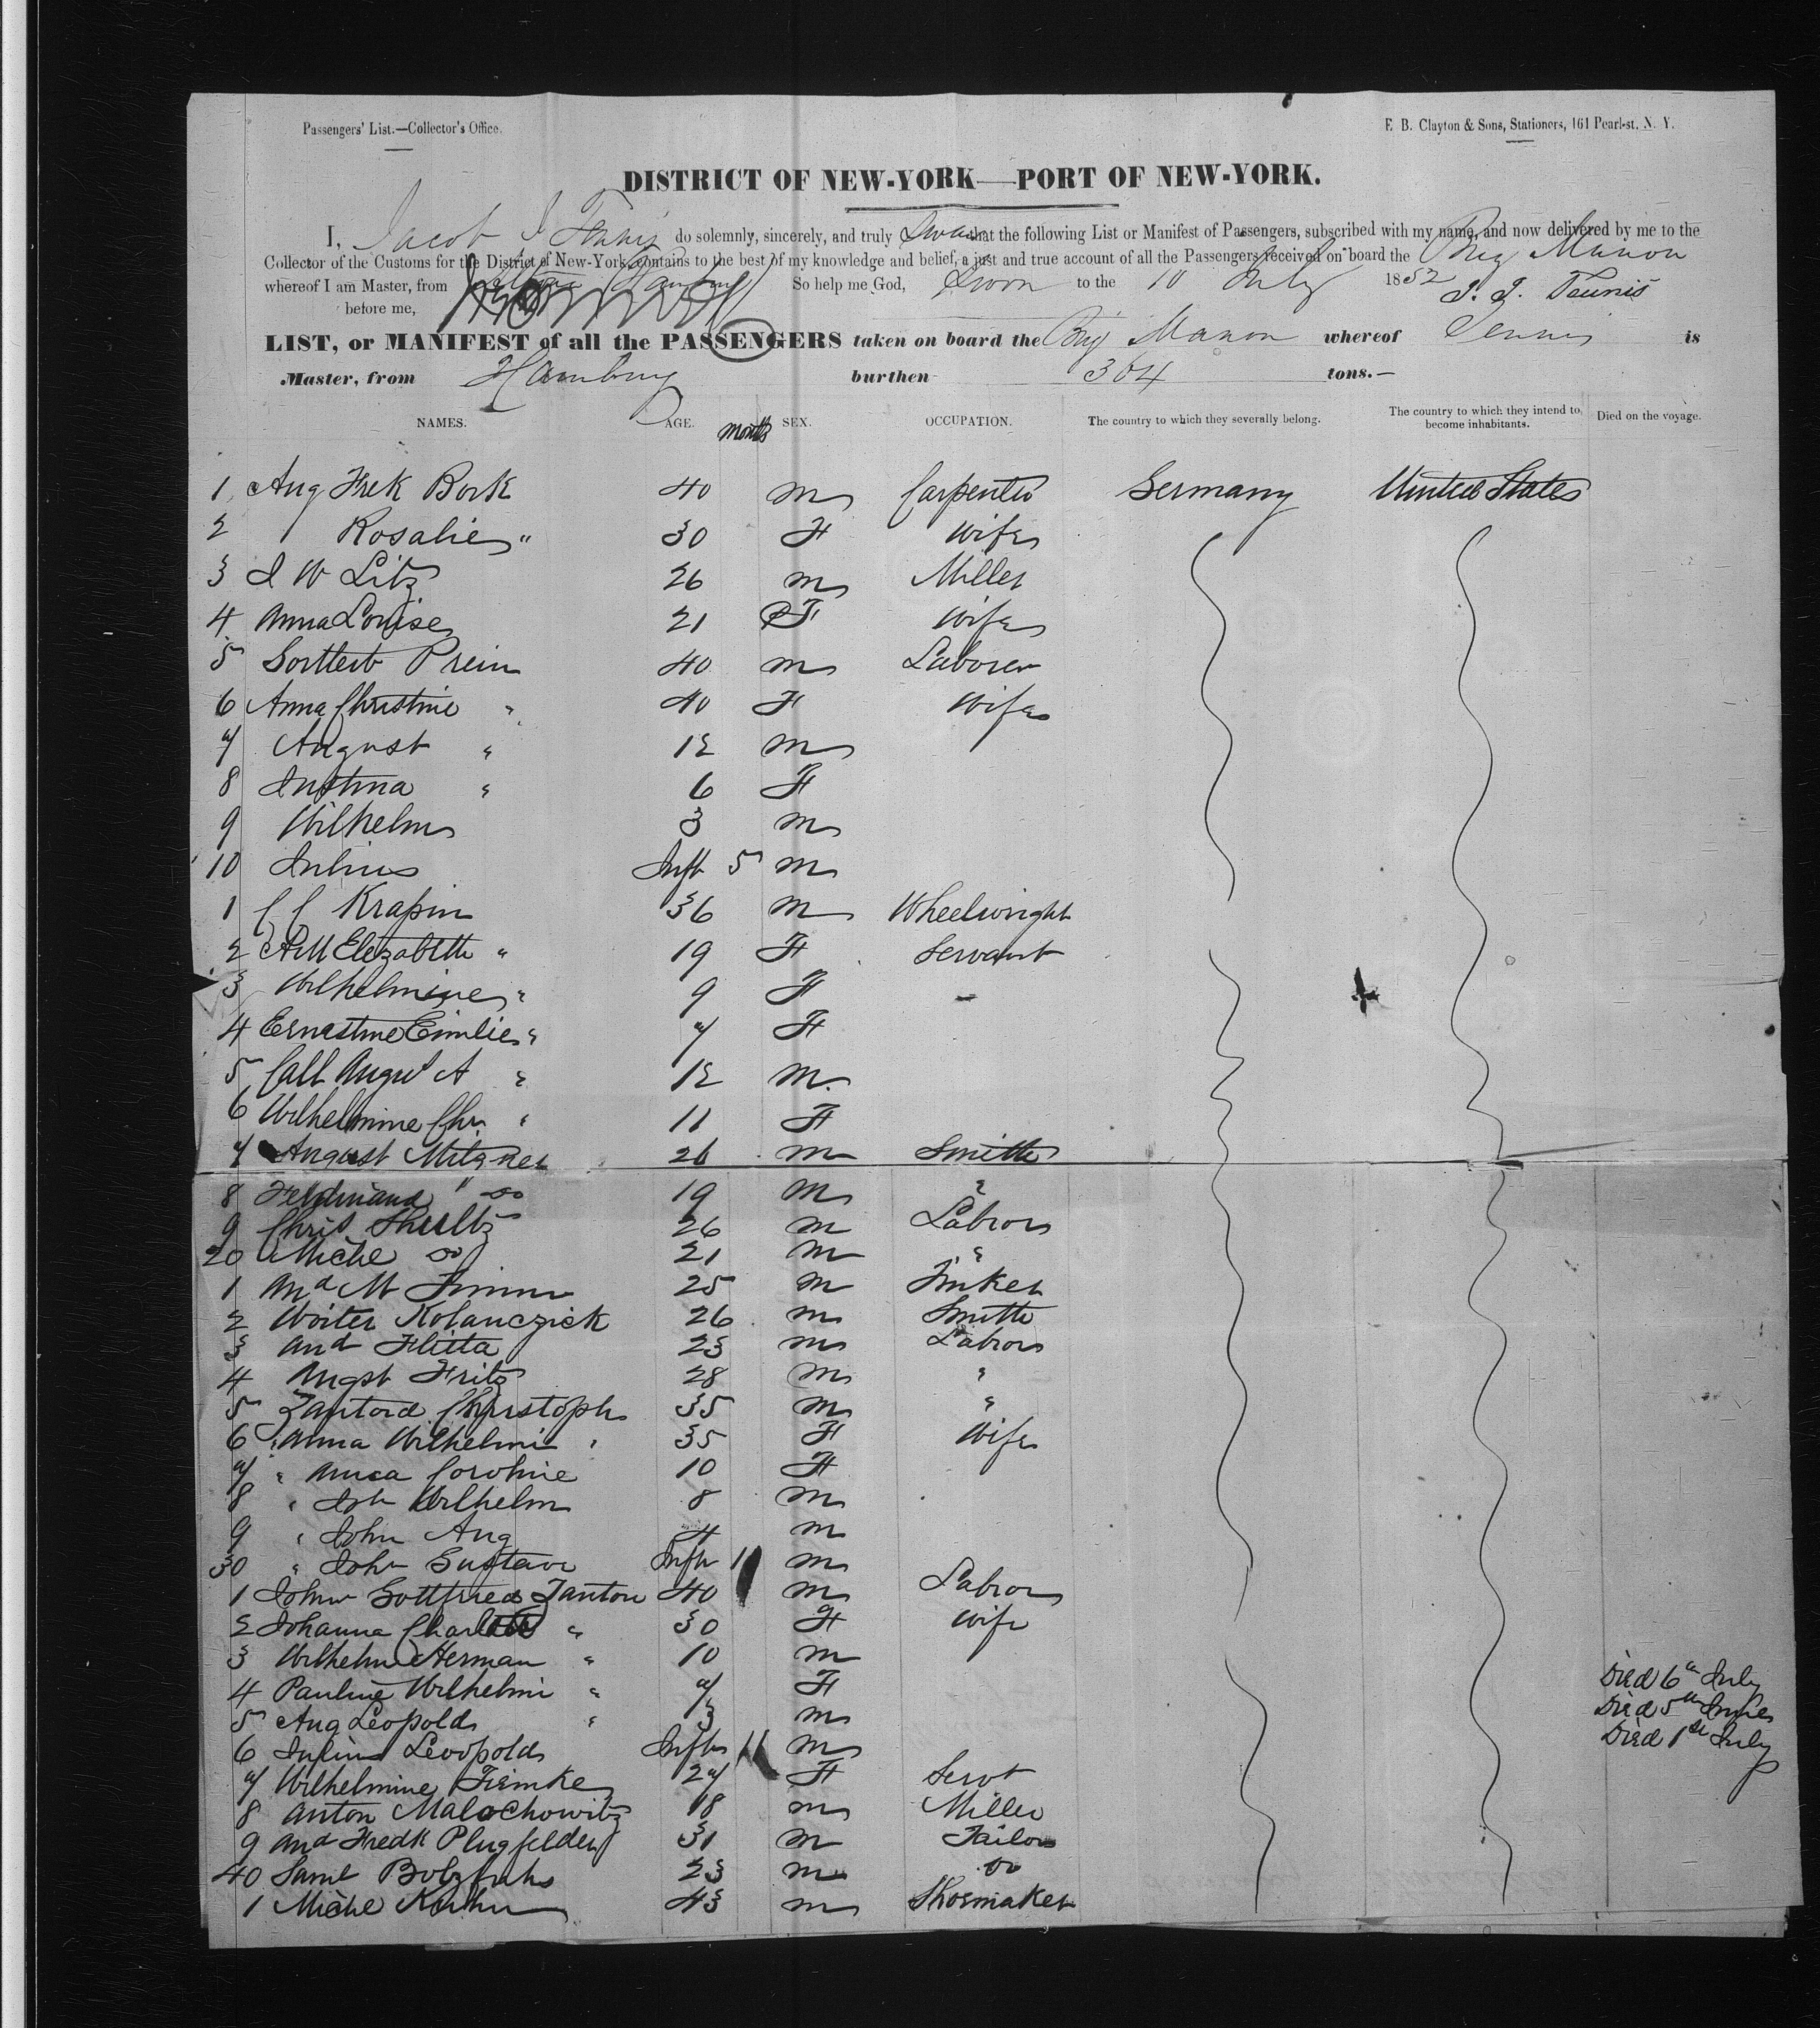 Passengers' List.—Collector's Office.
E. B. Clayton & Sons, Stationers, 161 Pearl-st. N. Y.
DISTRICT OF NEW-YORK—PORT OF NEW-YORK.
I, Jacob J do solemnly, sincerely, and truly Swear that the following List or Manifest of Passengers, subscribed with my name, and now delivered by me to the
Collector of the Customs for the District of New-York, contains to the best of my knowledge and belief, a just and true account of all the Passengers received on board the Brig Manon
whereof I am Master, from Hamburg So help me God, Sworn to the 10 July 1852 J. J. Teunis
before me,
LIST, or MANIFEST of all the PASSENGERS taken on board the Brig Manon whereof Teunis is
Master, from Hamburg burthen 304 tons.—
NAMES. AGE. months SEX. OCCUPATION. The country to which they severally belong. The country to which they intend to become inhabitants. Died on the voyage.
1 Aug Frek Bork 40 m Carpenter Germany United States
2 Rosalie " 30 F wife
3 J W Litz 26 m Miller
4 Anna Louise 21 F wife
5 Gottleib Prein 40 m Laborer
6 Anna Christine " 40 F wife
7 August " 12 m
8 Justina " 6 F
9 Wilhelm 3 m
10 Julius Inft 5 m
1 C C Krapin 36 m Wheelwright
2 Elezabeth " 19 F Servant
3 Wilhelmine " 9 F
4 Ernestine Emilie " 7 F
5 Carl August A " 12 m
6 Wilhelmine Chr. " 11 F
7 August Mitzner 26 m Smith
8 Ferdinand " do 19 m "
9 Chris Shultz 26 m Labror
20 Michl do 21 m "
1 And M Timm 25 m Tinker
2 Woiter Kolanczick 26 m Smith
3 And Flitta 23 m Labror
4 Augst Fritz 28 m "
5 Zantord Christoph 35 m "
6 " Anna Wilhelmi " 35 F Wife
7 " Anna Caroline 10 F
8 " Joh Wilhelm 8 m
9 " John Aug 4 m
30 " John Gustave Inft 11 m
1 John Gottfried Zanton 40 m Labror
2 Johanna " 30 F wife
3 Wilhelm Herman " 10 m
4 Pauline Wilhelmi " 7 F Died 6th July
5 Aug Leopold " 3 m Died 5th June
6 Julius Leopold Inft 11 m Died 1st July
7 Wilhelmine Ziemke 27 F Servt
8 Anton Malochowitz 18 m Miller
9 And Fredk Plugfelder 31 m Tailor
40 Saml Bolzfuhs 23 m do
1 Michl Kuhn 43 m Shoemaker